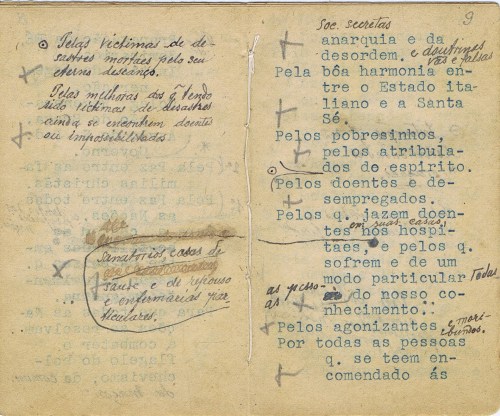 ⊙ Pelas victimas de de-
sastres mortaes pelo seu
eterno descanço.
Pelas melhoras dos q. tendo
sido victimas de desastres
ainda se encontrem doentes
ou impossibilitados
Sanatorios, casas de
saude e de repouso
e enfermarias par-
ticulares.
9
Soc. secretas
anarquia e da
desordem. e doutrinas
vãs e falsas
Pela bôa harmonia en-
tre o Estado ita-
liano e a Santa
Sé.
Pelos pobresinhos,
pelos atribula-
dos do espirito.
Pelos doentes e de-
sempregados.
Pelos q. jazem doen-
tes em suas casas, nos hospi-
taes, e pelos q.
sofrem e de um
modo particular todas
as pesso-
as do nosso co-
nhecimento.
Pelos agonizantes e mori-
bundos.
Por todas as pessoas
q. se teem en-
comendado ás